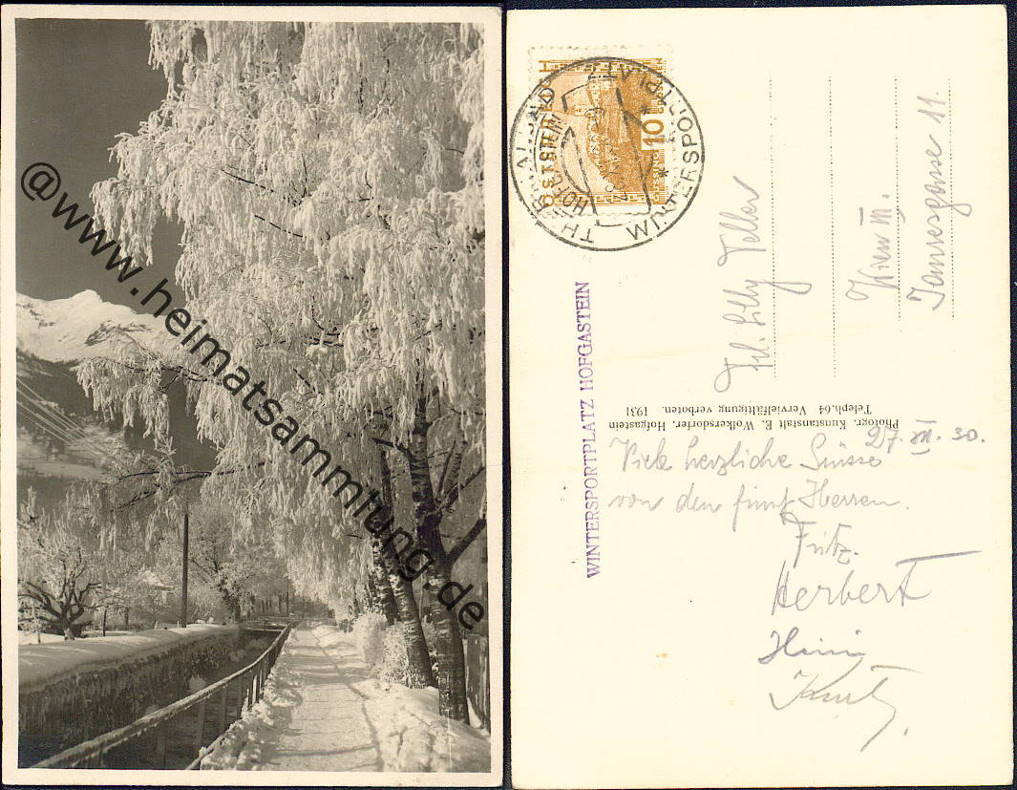 @www.heimatsammlung.de
ÖSTERREICH
10
THERMALBAD
WINTERSPORTPLATZ
HOFGASTEIN
WINTERSPORTPLATZ HOFGASTEIN
Frl. Lilly Teller
Wien III.
11.
Photogr. Kunstanstalt E. Wolkersdorfer, Hofgastein
Teleph.64 Vervielfältigung verboten. 1931
27. XII. 30.
Viele herzliche Grüsse
von den fünf Herren.
Fritz.
Herbert
Heini
Kurt.